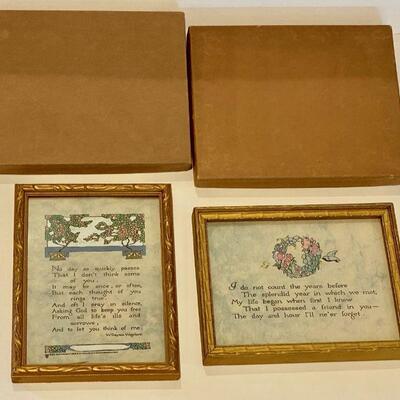 No day so quickly passes
That I don't think some
of you.
It may be once, or often,
But each thought of you
rings true.
And oft I pray in silence,
Asking God to keep you free
From all life's ills and
sorrows;
And to let you think of me.
I do not count the years before
The splendid year in which we met,
My life began when first I knew
That I possessed a friend in you—
The day and hour I'll ne'er forget.